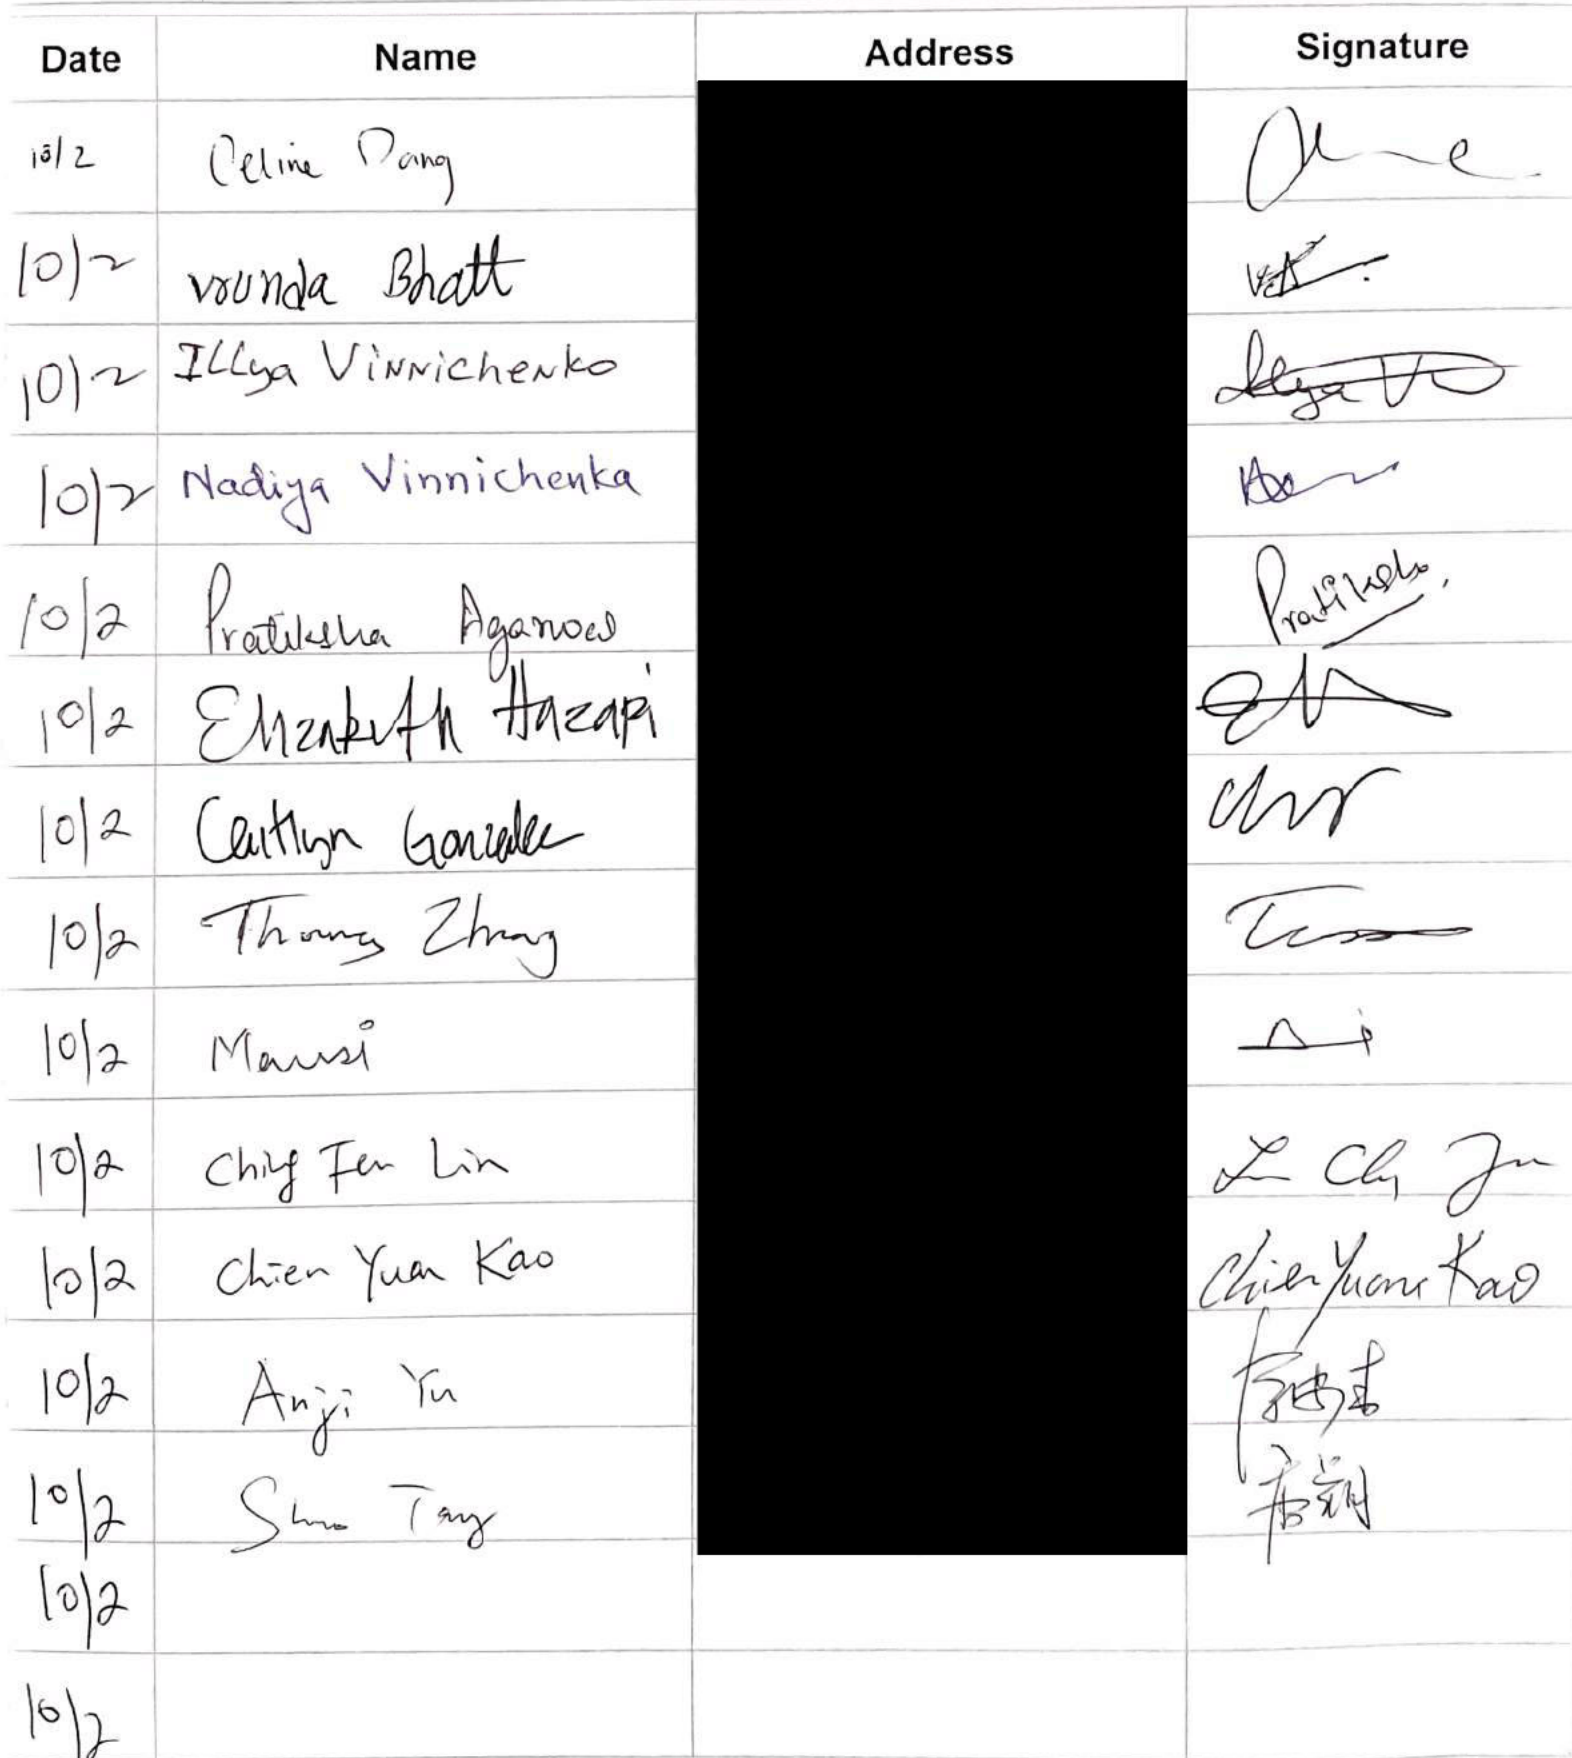 Date Name Address Signature
10/2 Celine Dang
10/2 Vrunda Bhatt
10/2 Illya Vinnichenko Illya V
10/2 Nadiya Vinnichenka
10/2 Pratiksha Agarwal Pratiksha
10/2 Elizabeth Hazapi
10/2 Caitlyn Gonzalez
10/2 Thomas Zhang
10/2 Mansi
10/2 Ching Fen Lin
10/2 Chien Yuan Kao Chien Yuan Kao
10/2 Anji Yu
10/2 Tang
10/2
10/2